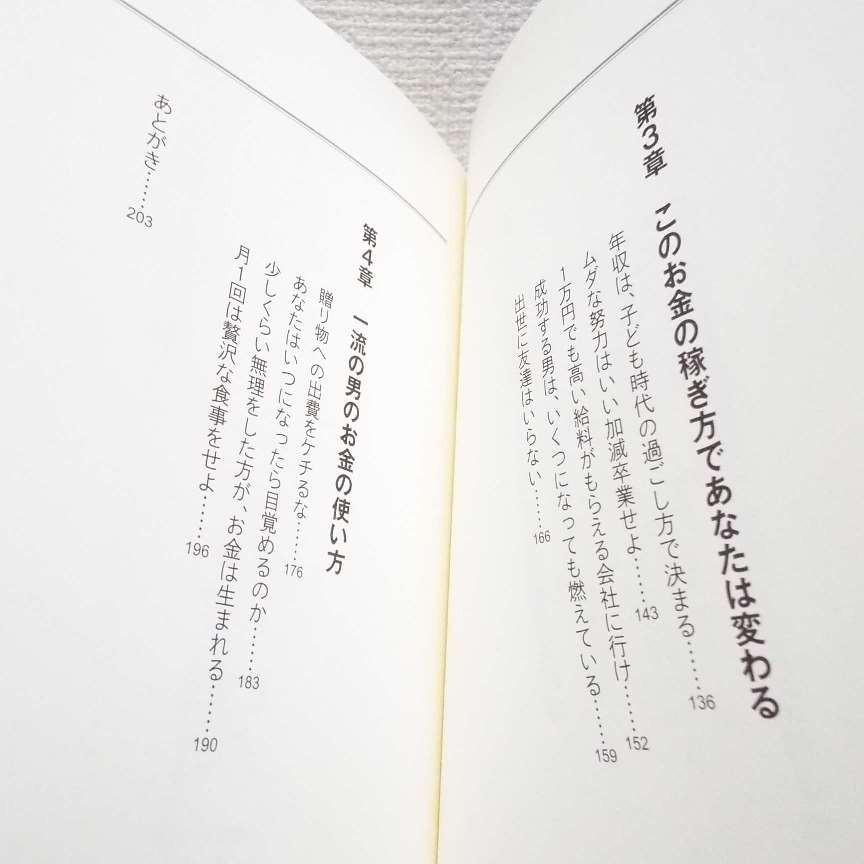 第3章 このお金の稼ぎ方であなたは変わる
年収は、子ども時代の過ごし方で決まる……136
ムダな努力はいい加減卒業せよ……143
1万円でも高い給料がもらえる会社に行け……152
成功する男は、いくつになっても燃えている……159
出世に友達はいらない……166
第4章 一流の男のお金の使い方
贈り物への出費をケチるな……176
あなたはいつになったら目覚めるのか……183
少しくらい無理をした方が、お金は生まれる……190
月1回は贅沢な食事をせよ……196
あとがき……203